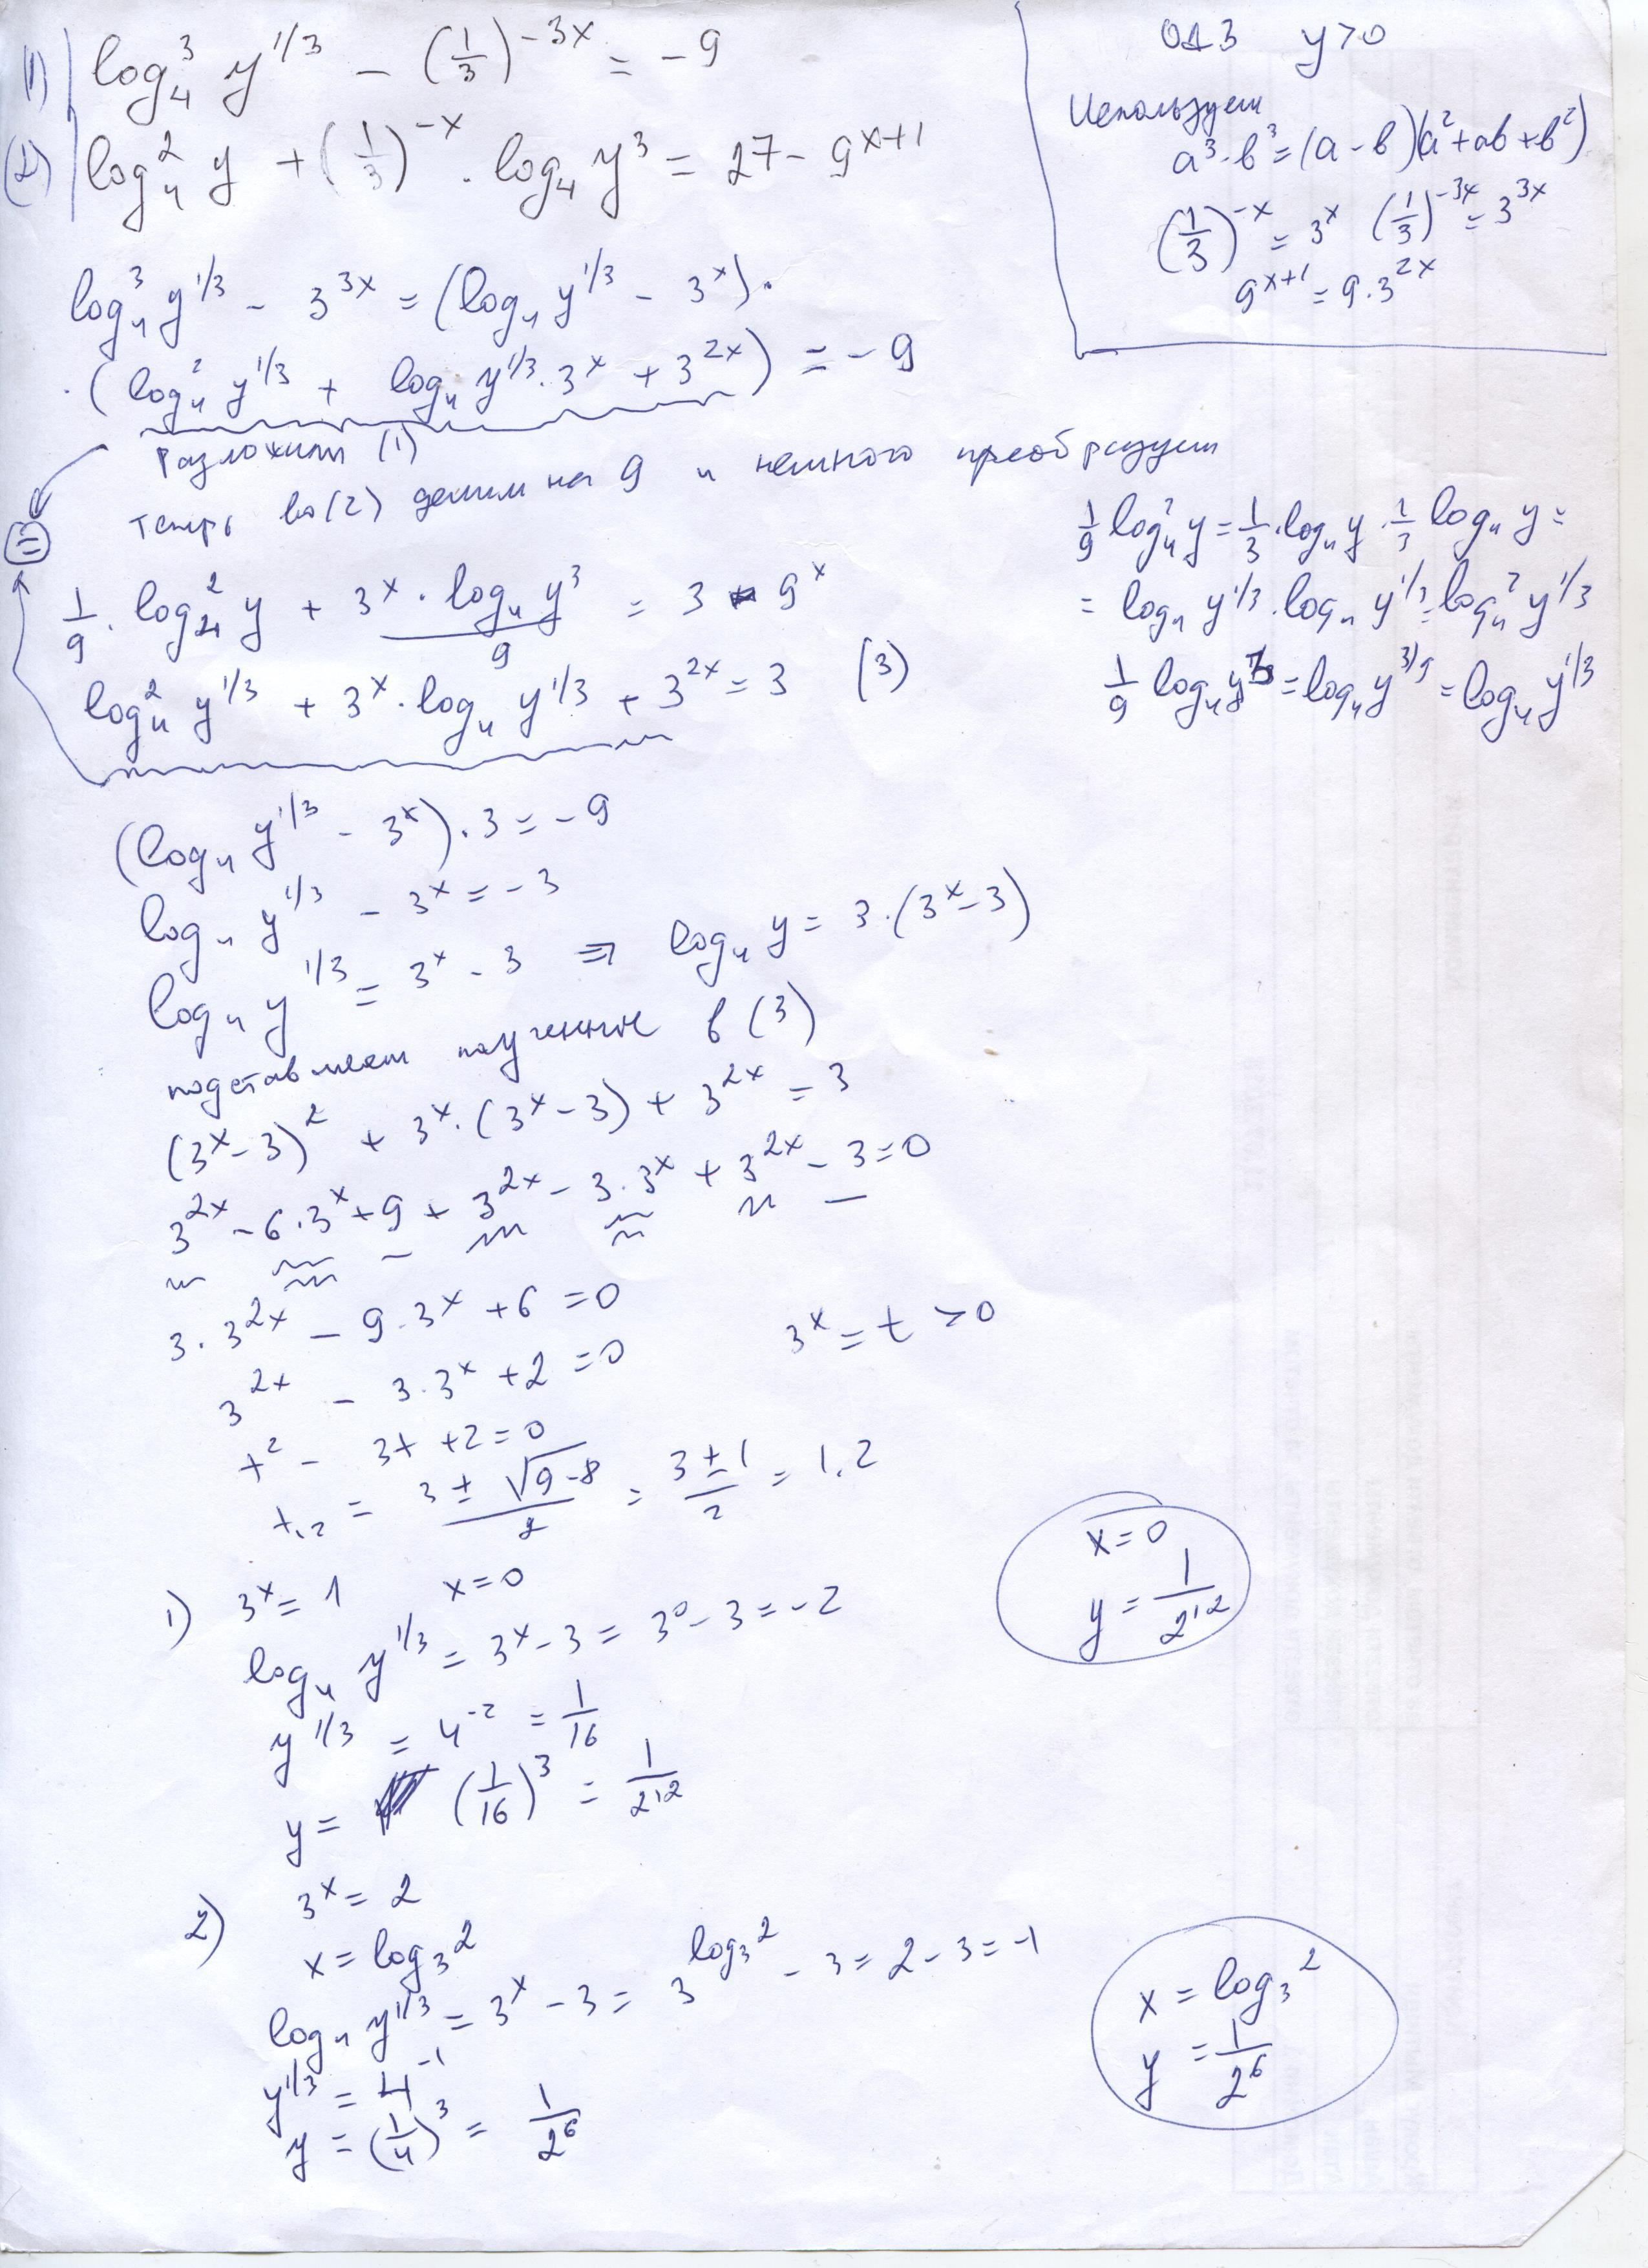 (1) log₄³ y^1/3 − (1/3)^−3x = −9
(2) log₄² y + (1/3)^−x · log₄ y³ = 27 − 9^x+1
ОДЗ y>0
Используем
a³-b³=(a-b)(a²+ab+b²)
(1/3)^−x = 3^x (1/3)^−3x = 3^3x
9^x+1 = 9·3^2x
log₄³ y^1/3 − 3^3x = (log₄ y^1/3 − 3^x)·
·(log₄² y^1/3 + log₄ y^1/3 · 3^x + 3^2x) = −9
Разложили (1)
Теперь во (2) делим на 9 и немного преобразуем
1/9 · log₄² y + 3^x · log₄ y³ / 9 = 3 - 9^x
log₄² y^1/3 + 3^x · log₄ y^1/3 + 3^2x = 3 (3)
1/9 log₄² y = 1/3 · log₄ y · 1/3 log₄ y =
= log₄ y^1/3 · log₄ y^1/3 = log₄² y^1/3
1/9 log₄ y³ = log₄ y^3/9 = log₄ y^1/3
(log₄ y^1/3 − 3^x) · 3 = −9
log₄ y^1/3 − 3^x = −3
log₄ y^1/3 = 3^x − 3 ⇒ log₄ y = 3·(3^x−3)
подставляем полученное в (3)
(3^x−3)² + 3^x·(3^x−3) + 3^2x = 3
3^2x − 6·3^x + 9 + 3^2x − 3·3^x + 3^2x − 3 = 0
3·3^2x − 9·3^x + 6 = 0
3^x = t > 0
3^2x − 3·3^x + 2 = 0
t² − 3t + 2 = 0
t₁,₂ = (3 ± √9−8)/2 = (3±1)/2 = 1, 2
1) 3^x = 1 x=0
log₄ y^1/3 = 3^x − 3 = 3⁰ − 3 = −2
y^1/3 = 4^−2 = 1/16
y = (1/16)³ = 1/2^12
x=0
y = 1/2^12
2) 3^x = 2
x = log₃ 2
log₄ y^1/3 = 3^x − 3 = 3^log₃2 − 3 = 2 − 3 = −1
y^1/3 = 4^−1
y = (1/4)³ = 1/2⁶
x = log₃ 2
y = 1/2⁶